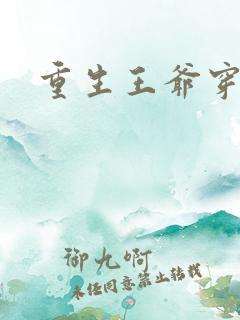 重生王爷穿
御九啊
未经同意禁止转载